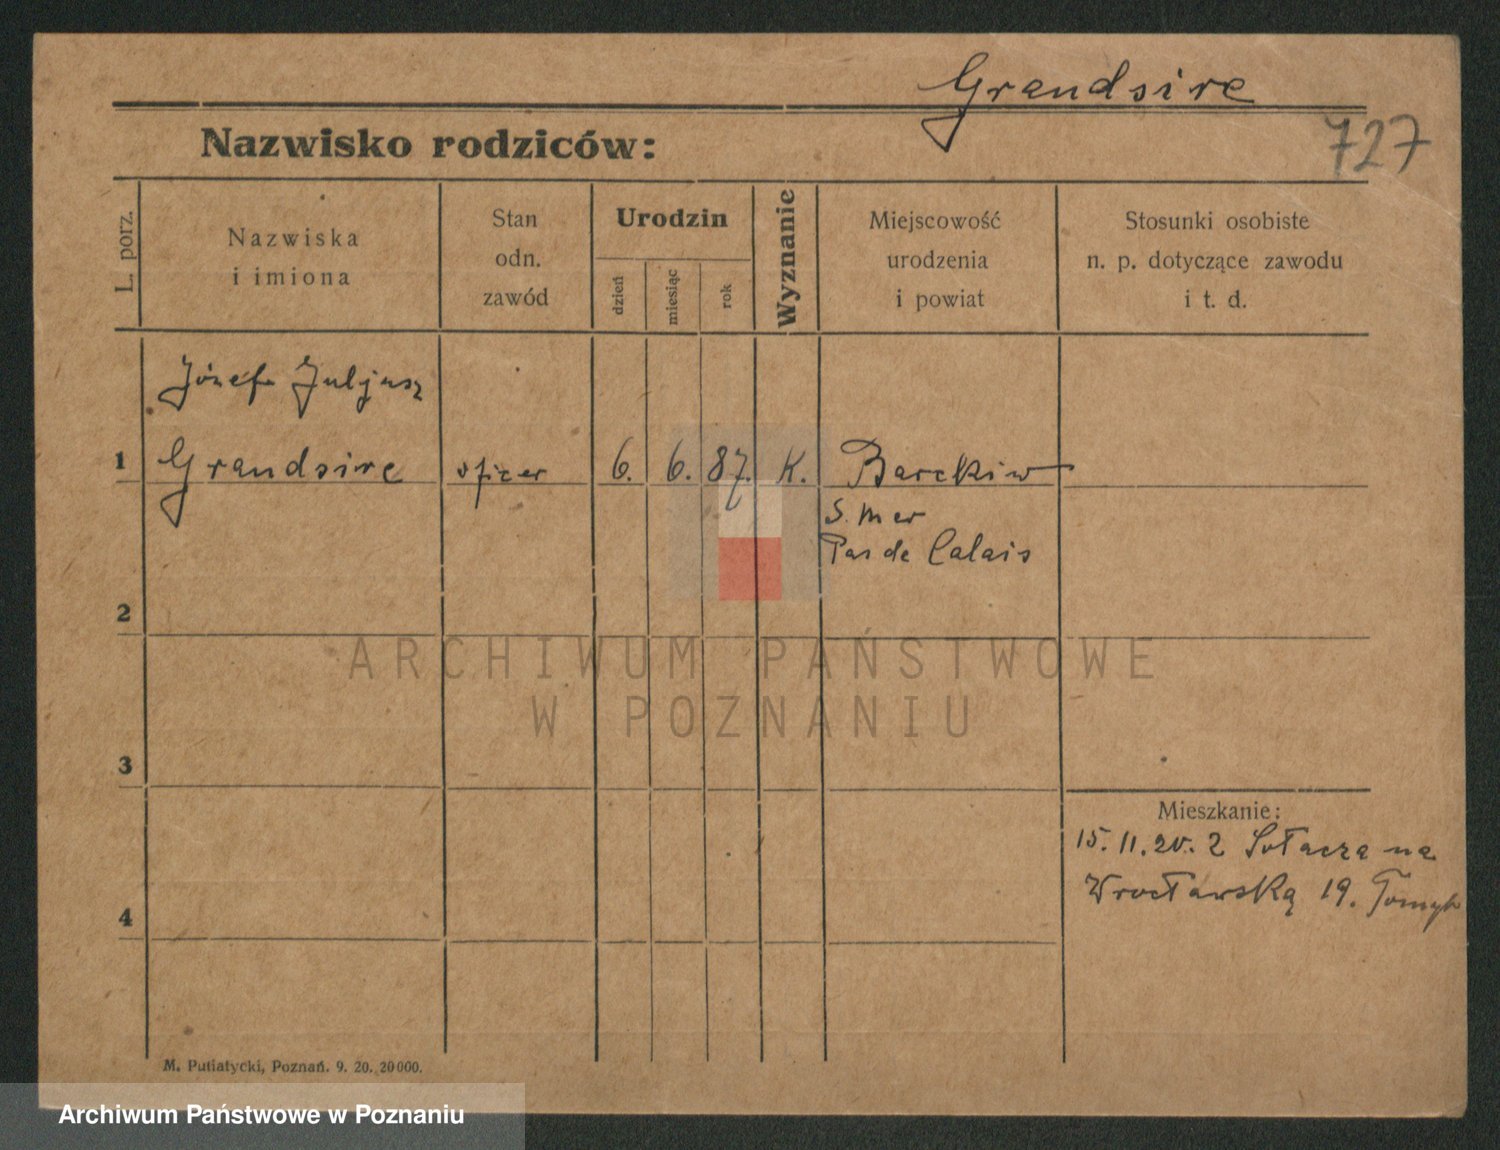 Grandsire
727
Nazwisko rodziców:
L. porz.
Nazwiska
i imiona
Stan
odn.
zawód
Urodzin
dzień
miesiąc
rok
Wyznanie
Miejscowość
urodzenia
i powiat
Stosunki osobiste
n. p. dotyczące zawodu
i t. d.
Józef Juljusz
1 Grandsire oficer 6. 6. 87. K. Barckiw
S. Mer
Pas de Calais
2
ARCHIWUM PAŃSTWOWE
W POZNANIU
3
Mieszkanie:
15. 11. 20. z Sołacza na
Wrocławską 19.
4
M. Putiatycki, Poznań. 9. 20. 20 000.
Archiwum Państwowe w Poznaniu